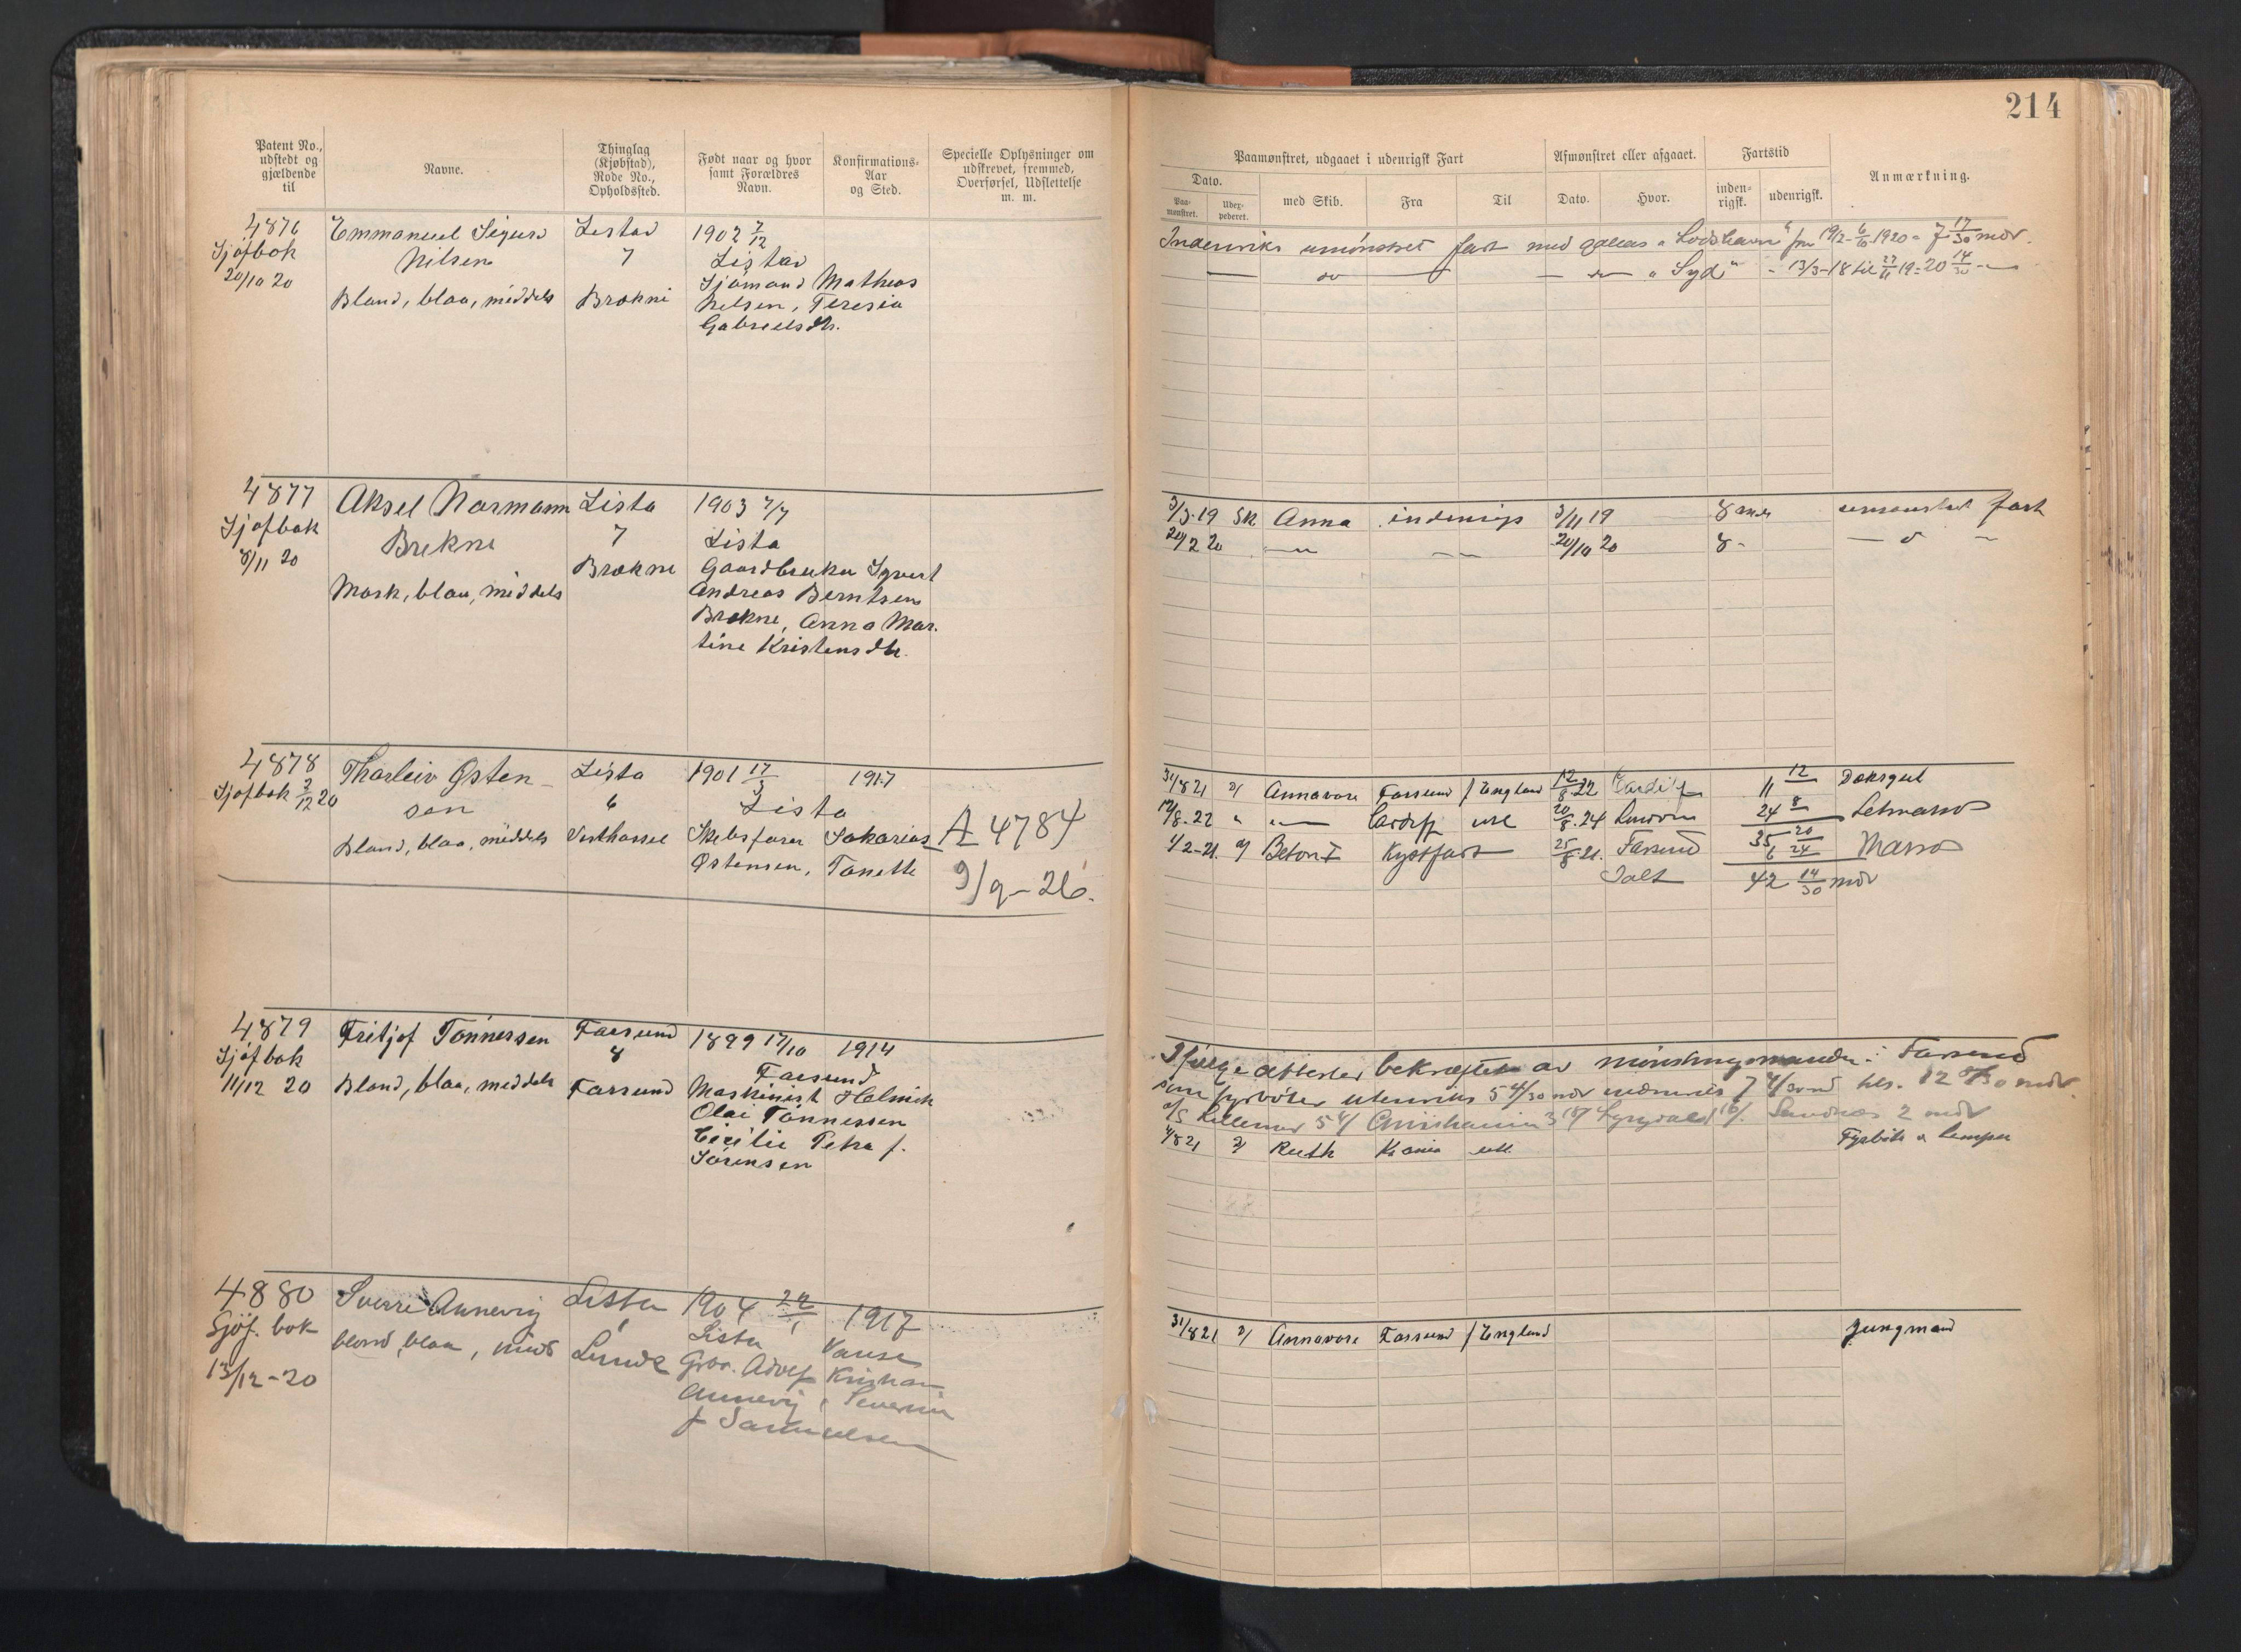 214
Patent No., udstedt og gjældende til
Navne.
Thinglag (Kjøbstad), Rode No., Opholdssted.
Født naar og hvor samt Forældres Navn.
Konfirmations-Aar og Sted.
Specielle Oplysninger om udskrevet, fremmed, Overførsel, Udslettelse m. m.
Paamønstret, udgaaet i udenrigsk Fart
Afmønstret eller afgaaet.
Fartstid
Anmærkning.
Dato.
Paa-mønstret.
Udex-pederet.
med Skib.
Fra
Til
Dato.
Hvor.
inden-rigsk.
udenrigsk.
4876 Emmanuel Sigurd Listad 1902 7/12
Sjøfbok Nilsen 7 Listad
20/10 20 Sjømand Matheas
Bland, blaa, middels Brekne Nilsen, Teresia
Gabrielsdtr.
Indenriks umønstret fart med galeas "Lodshavn" fra 19/2-6/10 1920 = 7 17/30 mdr.
— do — "Syd" - 13/3-18 til 27/11 19 = 20 14/30 —
4877 Aksel Normann Lista 1903 7/7
Sjøfbok Brekne 7 Lista
8/11 20 Brekne Gaardbruker Sgvert
Mørk, blaa, middels Andreas Berntsen
Brekne, Anna Mar-
tine Kristensdtr.
3/3-19 Sk Anna indenrigs 3/11 19 8 mdr umønstret fart
20/2 20 — — 20/10 20 8 - — " —
4878 Thorleiv Østen- Lista 1901 17/3 1917
Sjøfbok 3/12 20 sen 6 Lista
Bland, blaa, middels Vesthassel Skibsfører Sakarias A 4784
Østensen, Tonette 9/9-26.
31/8 21 D/ Annavore Farsund / England 12/8-22 Cardiff 11 12 Doksgut
12/8-22 " — Cardiff utl 20/8-24 24 8 Letmatros
35 20
1/2-21. Beton I Kystfart 25/8-21. Farsund 6 24 Matros
Ialt 42 14/30 mdr
4879 Fritjof Tønnessen Farsund 1899 17/10 1914
Sjøfbok 8 Farsund
11/12 20 Bland, blaa, middels Farsund Maskinist Helmich
Olai Tønnessen
Cicilie Petra f.
Sørensen
Ifølge attester bekræftet av mønstringsmanden i Farsund
som fyrbøter utenriks 5 4/30 mdr indenriks 7 4/30 md tils. 12 8/30 mdr
4/8 21 D/ Ruth Kr.ania utl. Fyrbøt. & Lemper
4880 Sverre Annevig Lista 1904 29/1 1917
Sjøf. bok 6 Lista Vanse
13/12-20 blond, blaa, mid Lunde Grbr. Adolf Kristian
Annevig, Severine
f Samuelsen
31/8 21 D/ Annavore Farsund / England Jungmand